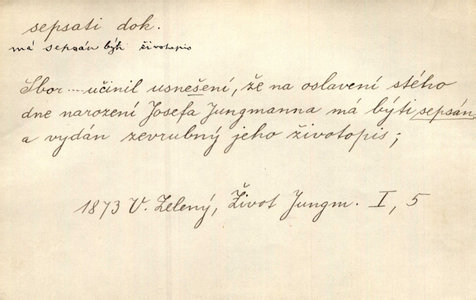 sepsati dok.
má sepsán býti životopis
Sbor ... učinil usnešení, že na oslavení stého
dne narození Josefa Jungmanna má býti sepsán
a vydán zevrubný jeho životopis;
1873 V. Zelený, Život Jungm. I, 5